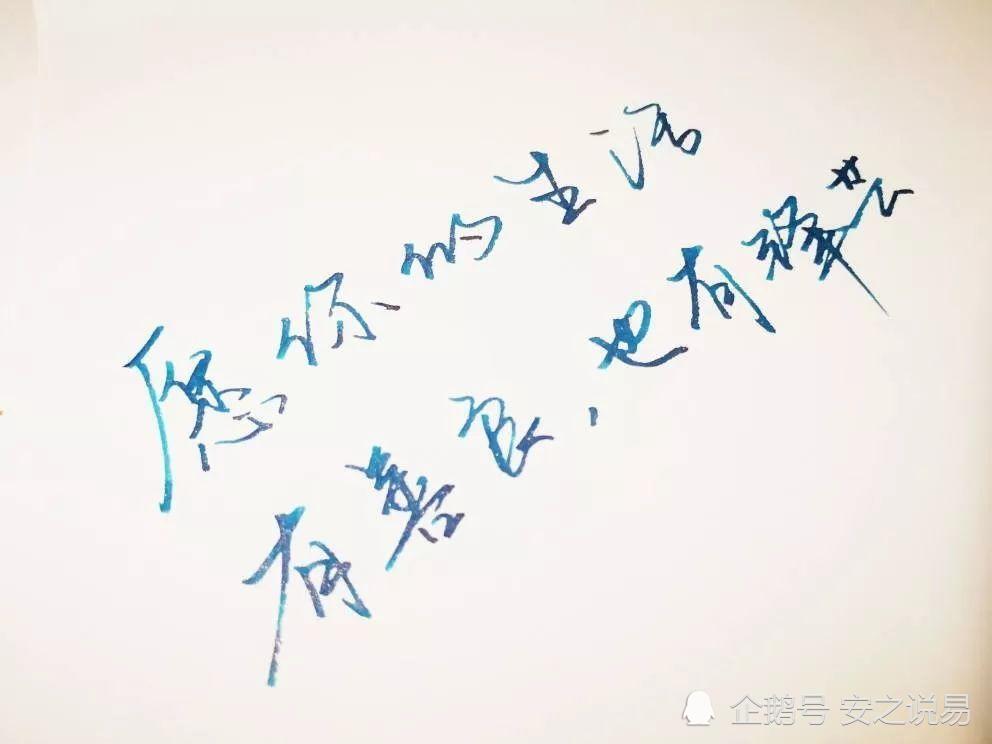 愿你的生活
有善良,也有锋芒
企鹅号 安之说易